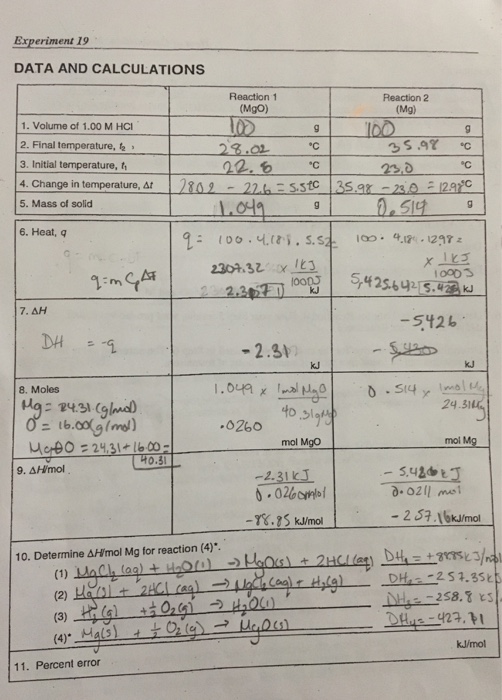 Experiment 19
DATA AND CALCULATIONS
Reaction 1 (MgO) Reaction 2 (Mg)
1. Volume of 1.00 M HCl 100 g 100 g
2. Final temperature, t₂ 28.02 °C 35.98 °C
3. Initial temperature, t₁ 22.6 °C 23.0 °C
4. Change in temperature, Δt 2802 - 22.6 = 5.52°C 35.98 - 23.0 = 12.98°C
5. Mass of solid 1.049 g 0.514 g
6. Heat, q
q = mCpΔT
q = 100 . 4.181 . 5.52
2307.32 x 1kJ
1000J
kJ
100 . 4.18 . 12.98 =
x 1kJ
1000J
5,425.642 5.426 kJ
7. ΔH
DH = -q
-2.31 kJ
-5.426
kJ
8. Moles
Mg = 24.31 (g/mol)
O = 16.00 (g/mol)
MgO = 24.31 + 16.00 =
40.31
1.049 x 1mol MgO
40.31g MgO
.0260
mol MgO
0.514 x 1mol Mg
24.31Mg
mol Mg
9. ΔH/mol
-2.31 kJ
0.0260mol
-88.85 kJ/mol
- 5.426 kJ
0.0211 mol
- 257.16 kJ/mol
10. Determine ΔH/mol Mg for reaction (4)*.
(1) MgCl₂ (aq) + H₂O(l) → MgO(s) + 2HCl (aq) DH₁ = +88.85kJ/mol
(2) Mg(s) + 2HCl (aq) → MgCl₂(aq) + H₂(g) DH₂ = -257.35kJ
(3) H₂(g) + ½ O₂(g) → H₂O(l) DH₃ = -258.8 kJ
(4)* Mg(s) + ½ O₂(g) → MgO(s) DH₄ = -427.71
kJ/mol
11. Percent error